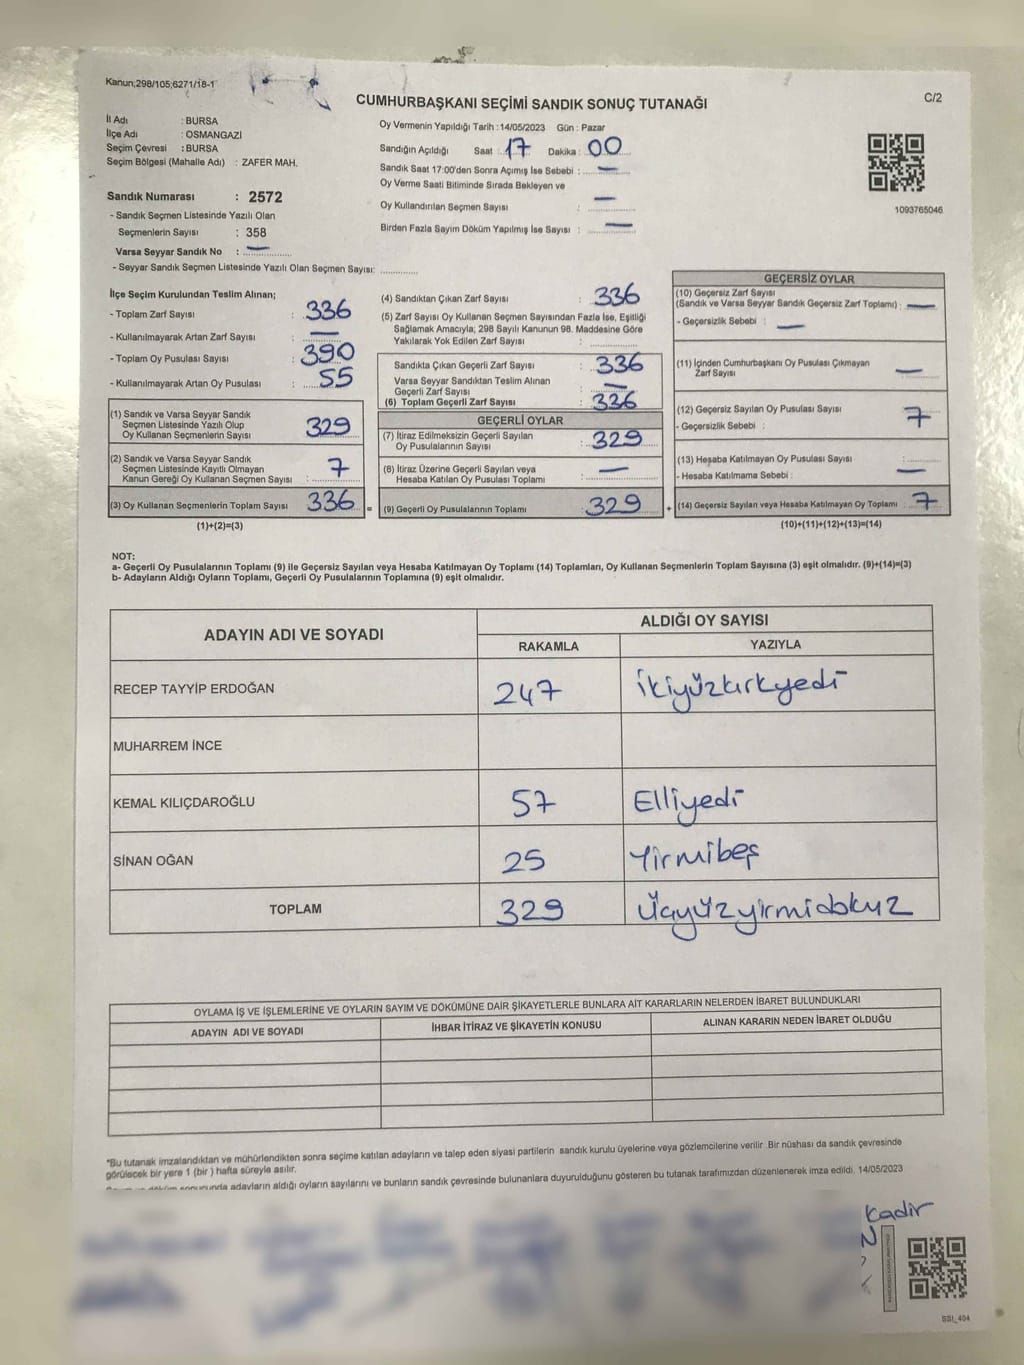 Kanun;298/105;6271/18-1
CUMHURBAŞKANI SEÇİMİ SANDIK SONUÇ TUTANAĞI
C/2
İl Adı : BURSA
İlçe Adı : OSMANGAZİ
Seçim Çevresi : BURSA
Seçim Bölgesi (Mahalle Adı) : ZAFER MAH.
Sandık Numarası : 2572
- Sandık Seçmen Listesinde Yazılı Olan
Seçmenlerin Sayısı : 358
Varsa Seyyar Sandık No : —
- Seyyar Sandık Seçmen Listesinde Yazılı Olan Seçmen Sayısı: ............
Oy Vermenin Yapıldığı Tarih :14/05/2023 Gün : Pazar
Sandığın Açıldığı Saat : 17 Dakika : 00
Sandık Saat 17:00'den Sonra Açımış İse Sebebi : —
Oy Verme Saati Bitiminde Sırada Bekleyen ve
Oy Kullandırılan Seçmen Sayısı : —
Birden Fazla Sayım Döküm Yapılmış İse Sayısı : —
1093765046
İlçe Seçim Kurulundan Teslim Alınan;
- Toplam Zarf Sayısı : 336
- Kullanılmayarak Artan Zarf Sayısı : —
- Toplam Oy Pusulası Sayısı : 390
- Kullanılmayarak Artan Oy Pusulası : 55
(1) Sandık ve Varsa Seyyar Sandık
Seçmen Listesinde Yazılı Olup
Oy Kullanan Seçmenlerin Sayısı 329
(2) Sandık ve Varsa Seyyar Sandık
Seçmen Listesinde Kayıtlı Olmayan
Kanun Gereği Oy Kullanan Seçmen Sayısı : 7
(3) Oy Kullanan Seçmenlerin Toplam Sayısı 336
(1)+(2)=(3)
(4) Sandıktan Çıkan Zarf Sayısı : 336
(5) Zarf Sayısı Oy Kullanan Seçmen Sayısından Fazla İse, Eşitliği
Sağlamak Amacıyla; 298 Sayılı Kanunun 98. Maddesine Göre
Yakılarak Yok Edilen Zarf Sayısı : ............
Sandıkta Çıkan Geçerli Zarf Sayısı : 336
Varsa Seyyar Sandıktan Teslim Alınan
Geçerli Zarf Sayısı : —
(6) Toplam Geçerli Zarf Sayısı : 336
GEÇERLİ OYLAR
(7) İtiraz Edilmeksizin Geçerli Sayılan
Oy Pusulalarının Sayısı : 329
(8) İtiraz Üzerine Geçerli Sayılan veya
Hesaba Katılan Oy Pusulası Toplamı : —
= (9) Geçerli Oy Pusulalarının Toplamı : 329
GEÇERSİZ OYLAR
(10) Geçersiz Zarf Sayısı
(Sandık ve Varsa Seyyar Sandık Geçersiz Zarf Toplamı) : —
- Geçersizlik Sebebi : —
(11) İçinden Cumhurbaşkanı Oy Pusulası Çıkmayan
Zarf Sayısı —
(12) Geçersiz Sayılan Oy Pusulası Sayısı 7
- Geçersizlik Sebebi :
(13) Hesaba Katılmayan Oy Pusulası Sayısı : ............
- Hesaba Katılmama Sebebi : —
+ (14) Geçersiz Sayılan veya Hesaba Katılmayan Oy Toplamı : 7
(10)+(11)+(12)+(13)=(14)
NOT:
a- Geçerli Oy Pusulalarının Toplamı (9) ile Geçersiz Sayılan veya Hesaba Katılmayan Oy Toplamı (14) Toplamları, Oy Kullanan Seçmenlerin Toplam Sayısına (3) eşit olmalıdır. (9)+(14)=(3)
b- Adayların Aldığı Oyların Toplamı, Geçerli Oy Pusulalarının Toplamına (9) eşit olmalıdır.
ADAYIN ADI VE SOYADI
ALDIĞI OY SAYISI
RAKAMLA YAZIYLA
RECEP TAYYİP ERDOĞAN 247 ikiyüzkırkyedi
MUHARREM İNCE
KEMAL KILIÇDAROĞLU 57 Elliyedi
SİNAN OĞAN 25 Yirmibeş
TOPLAM 329 Üçyüzyirmidokuz
OYLAMA İŞ VE İŞLEMLERİNE VE OYLARIN SAYIM VE DÖKÜMÜNE DAİR ŞİKAYETLERLE BUNLARA AİT KARARLARIN NELERDEN İBARET BULUNDUKLARI
ADAYIN ADI VE SOYADI İHBAR İTİRAZ VE ŞİKAYETİN KONUSU ALINAN KARARIN NEDEN İBARET OLDUĞU
*Bu tutanak imzalandıktan ve mühürlendikten sonra seçime katılan adayların ve talep eden siyasi partilerin sandık kurulu üyelerine veya gözlemcilerine verilir. Bir nüshası da sandık çevresinde
görülecek bir yere 1 (bir ) hafta süreyle asılır.
sonucunda adayların aldığı oyların sayılarını ve bunların sandık çevresinde bulunanlara duyurulduğunu gösteren bu tutanak tarafımızdan düzenlenerek imza edildi. 14/05/2023
Kadir
SSI_404